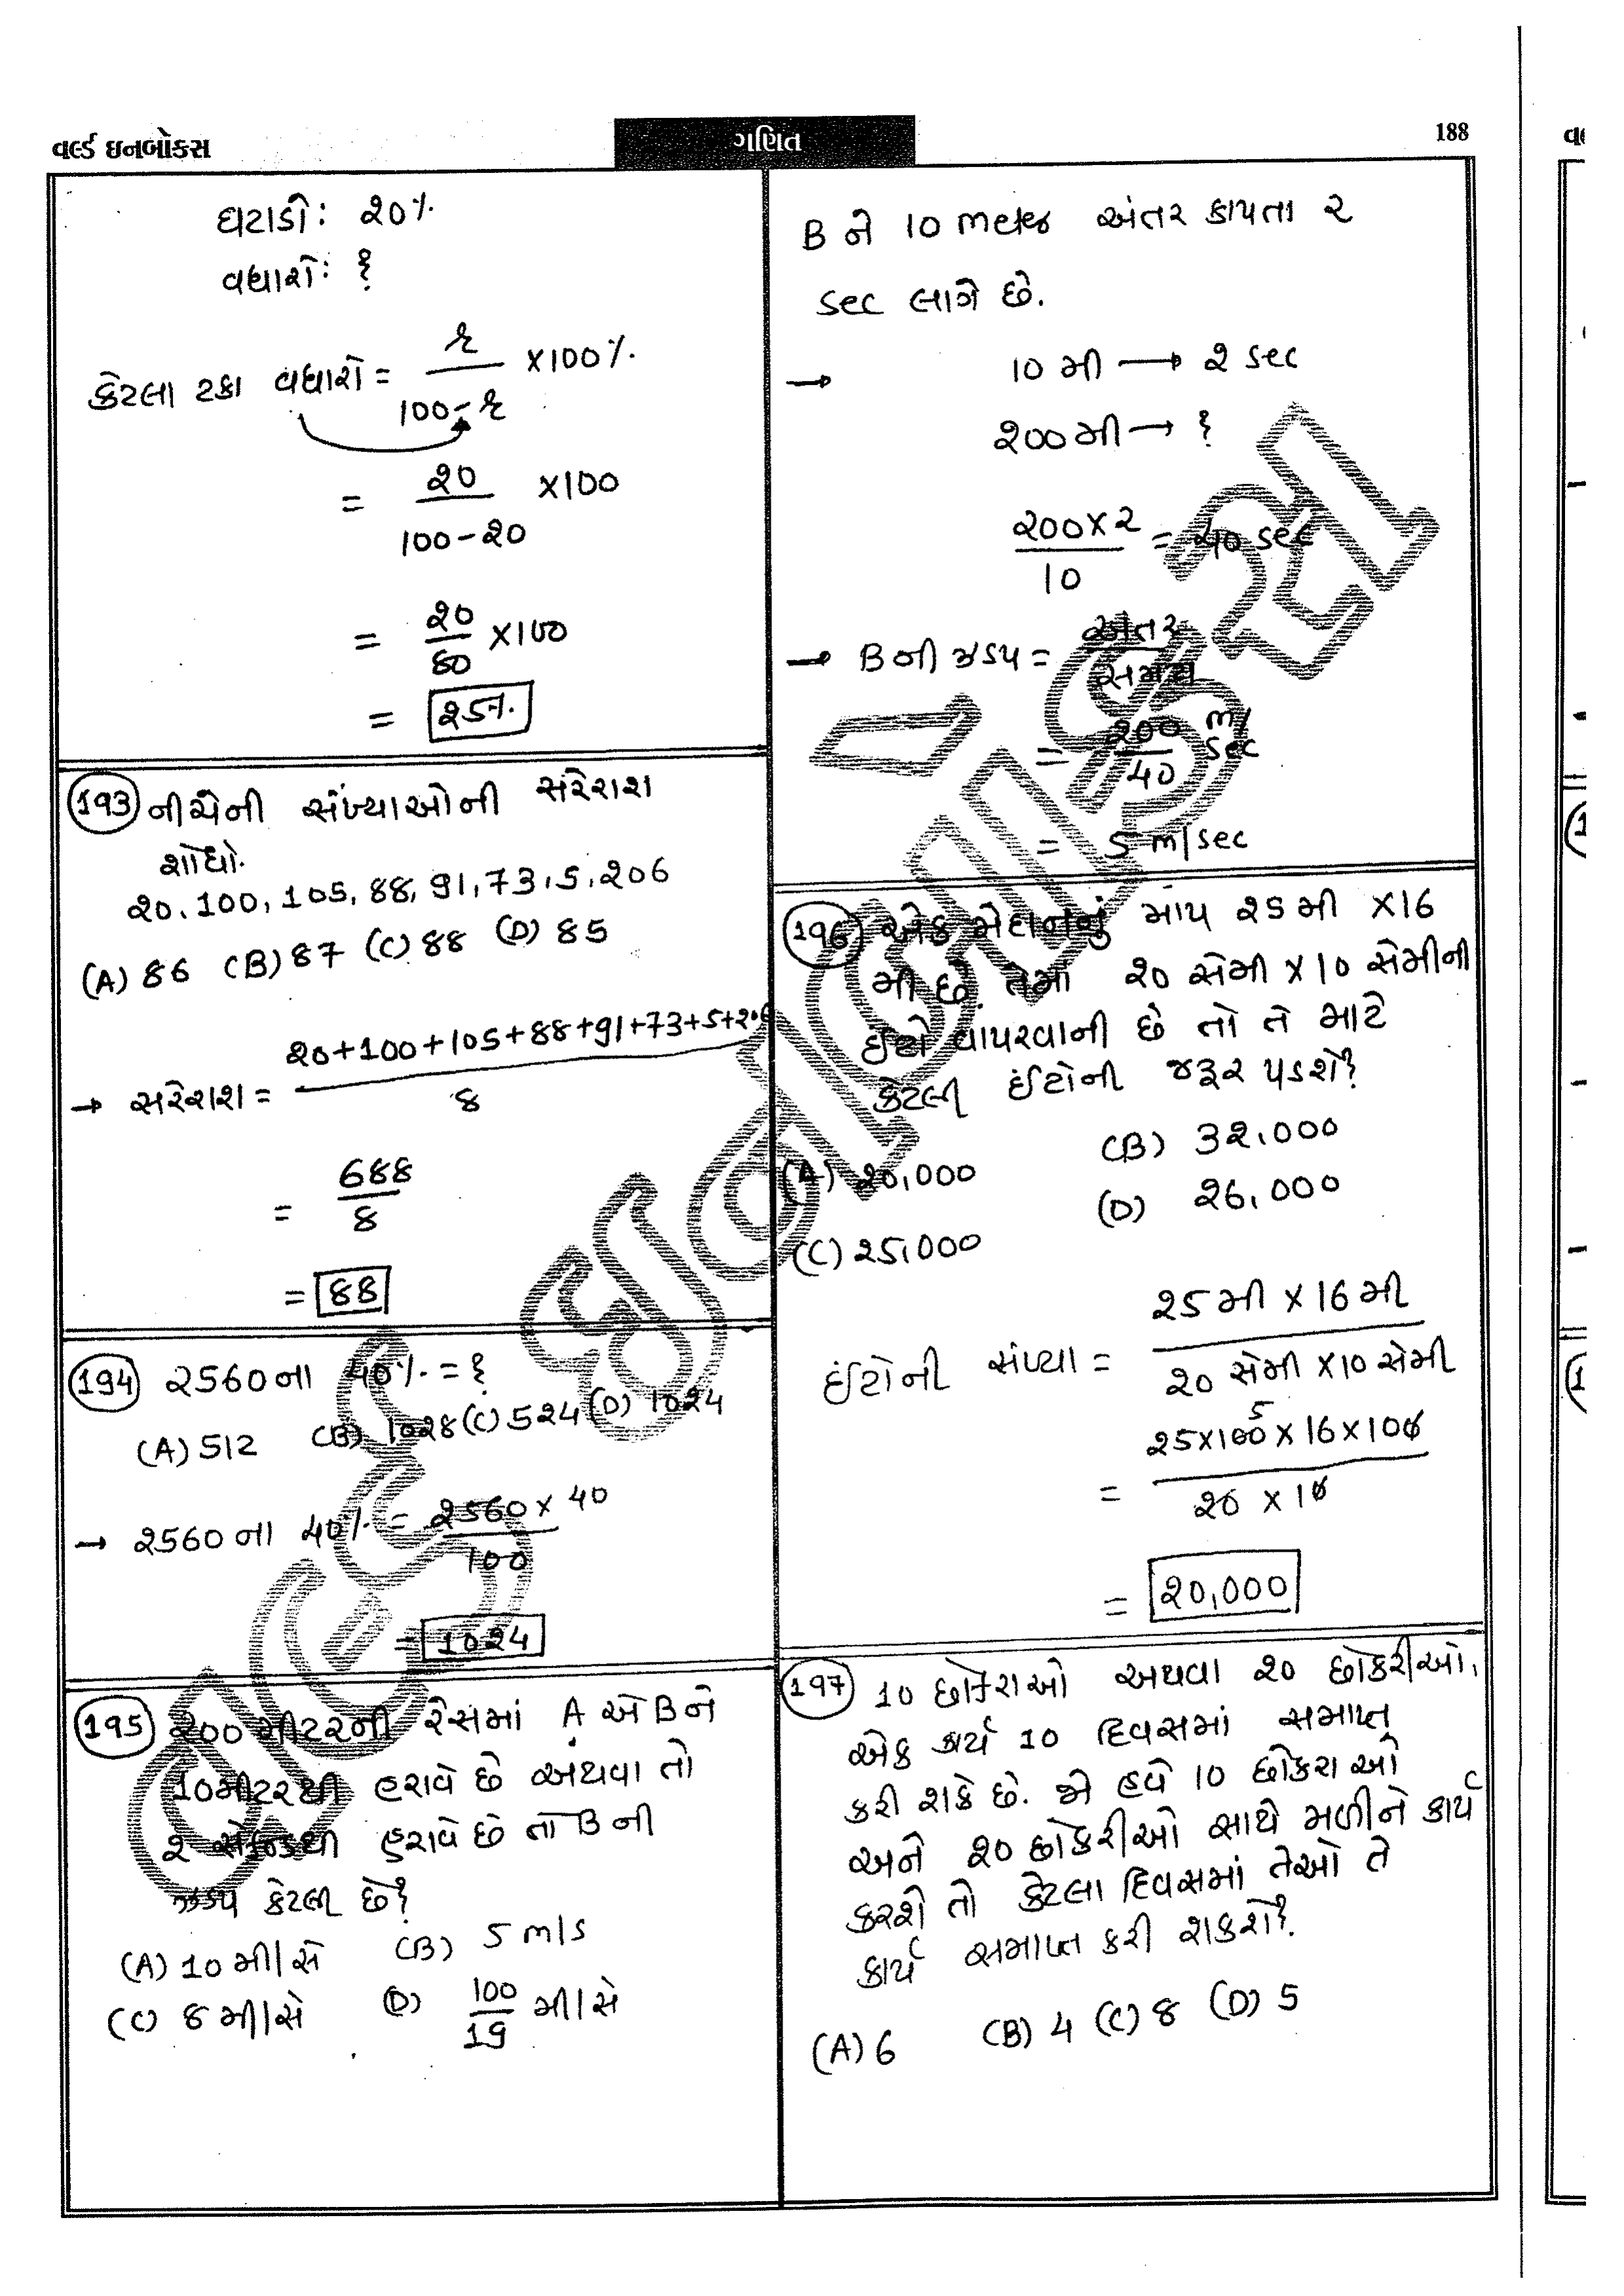 વર્લ્ડ ઇનબોક્સ
ગણિત
188
ઘટાડો: 20%
વધારો: ?
કેટલા ટકા વધારો = r / 100-r ×100%
= 20 / 100-20 ×100
= 20 / 80 ×100
= 25%
193 નીચેની સંખ્યાઓની સરેરાશ
શોધો.
20, 100, 105, 88, 91, 73, 5, 206
(A) 86 (B) 87 (C) 88 (D) 85
→ સરેરાશ = 20+100+105+88+91+73+5+206 / 8
= 688 / 8
= 88
194 2560ના 40% = ?
(A) 512 (B) 1028 (C) 524 (D) 1024
→ 2560ના 40% = 2560 × 40 / 100
= 1024
195 200 મીટરની રેસમાં A એ B ને
10મીટરથી હરાવે છે અથવા તો
2 સેકન્ડથી હરાવે છે તો B ની
ઝડપ કેટલી છે?
(A) 10 મી/સે (B) 5 m/s
(C) 8 મી/સે (D) 100/19 મી/સે
B ને 10 અંતર કાપતા 2
sec લાગે છે.
→ 10 મી → 2 sec
200મી → ?
200×2 / 10 = 40 sec
→ B ની ઝડપ = અંતર / સમય
= 200 / 40 m/sec
= 5 m/sec
196 એક મેદાનનું માપ 25મી ×16
મી છે. તેમાં 20 સેમી ×10 સેમીની
ઈંટો વાપરવાની છે તો તે માટે
કેટલી ઈંટોની જરૂર પડશે?
(A) 20,000 (B) 32,000
(C) 25,000 (D) 26,000
ઈંટોની સંખ્યા = 25મી × 16મી / 20 સેમી ×10 સેમી
5
= 25×100 × 16×100 / 20 × 10
= 20,000
197 10 છોકરાઓ અથવા 20 છોકરીઓ,
એક કાર્ય 10 દિવસમાં સમાપ્ત
કરી શકે છે. જો હવે 10 છોકરાઓ
અને 20 છોકરીઓ સાથે મળીને કાર્ય
કરશે તો કેટલા દિવસમાં તેઓ તે
કાર્ય સમાપ્ત કરી શકશે?
(A) 6 (B) 4 (C) 8 (D) 5